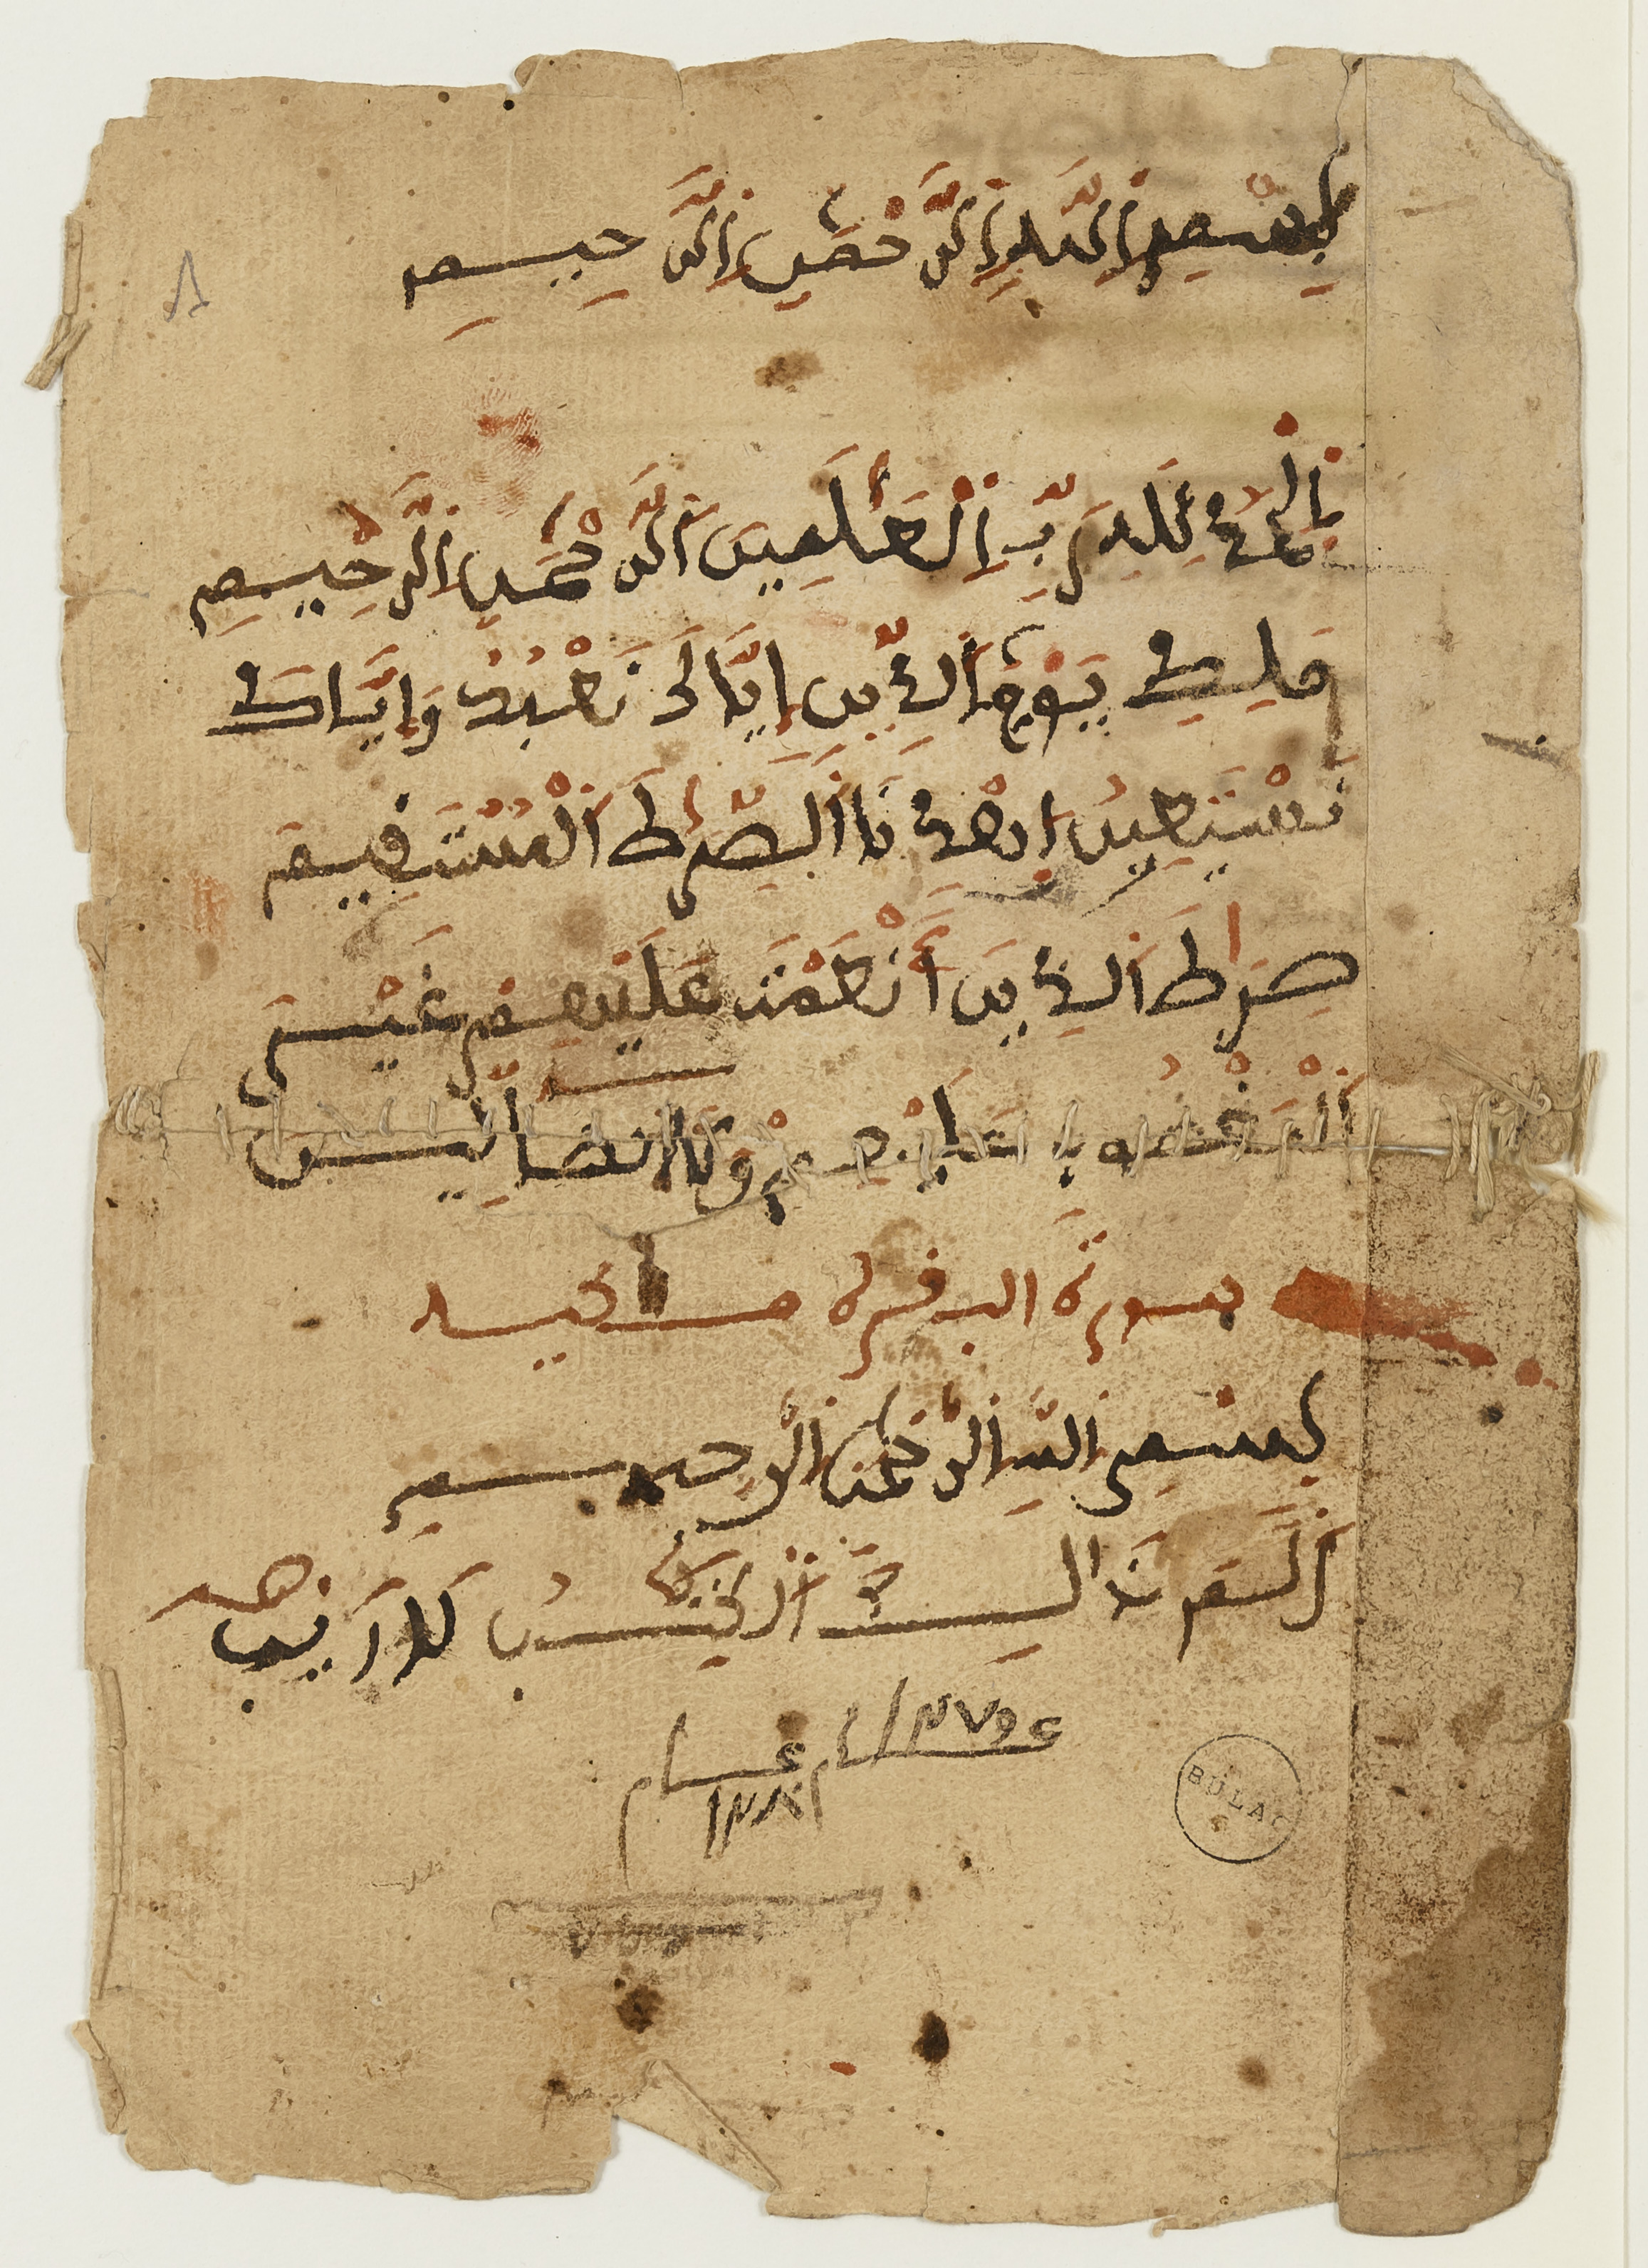 بِسْمِ اِللَّهِ اِلرَّحْمَٰنِ اِلرَّحِيمِ
٨
اَلْحَمْدُ لِلهِ رَبِّ اِلْعَٰلَمِينَ اَلرَّحْمَٰنِ اِلرَّحِيمِ
مَلِكِ يَوْمِ اِلدِّينِ إِيَّاكَ نَعْبُدُ وَإِيَّاكَ
نَسْتَعِينُ اِهْدِنَا اَلصِّرَٰطَ اَلْمُسْتَقِيمَ
صِرَٰطَ اَلذِينَ أَنْعَمْتَ عَلَيْهِمْ غَيْرِ
اِلْمَغْضُوبِ عَلَيْهِمْ وَلَا اَلضَّآلِّينَ
سورة البقرة مكية
بِسْمِ اِللَّهِ اِلرَّحْمَٰنِ اِلرَّحِيمِ
أَلَمَ ذَالِكَ اَلْكِتَٰبُ لَا رَيْبَ
BULAC